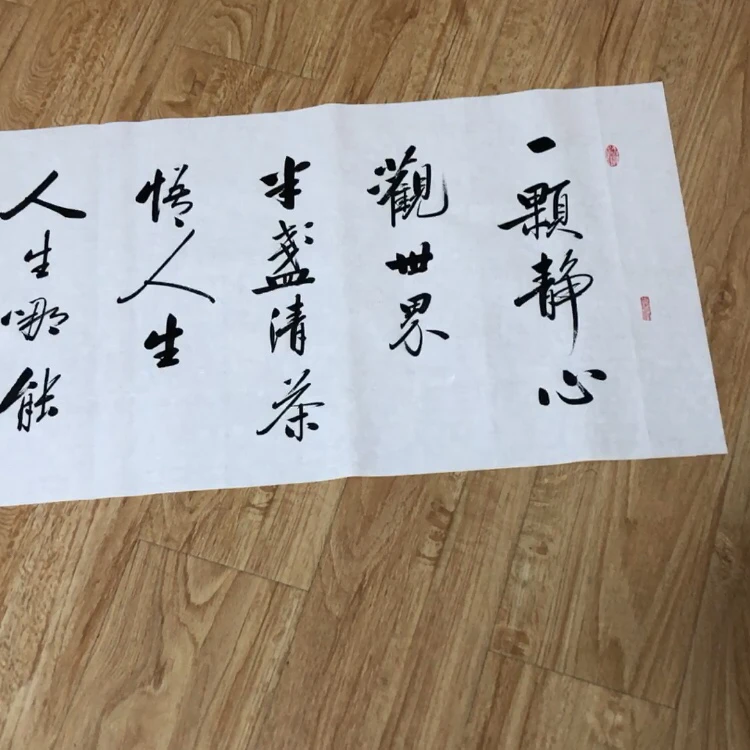 一顆静心
觀世界
半盞清茶
悟人生
人生哪能